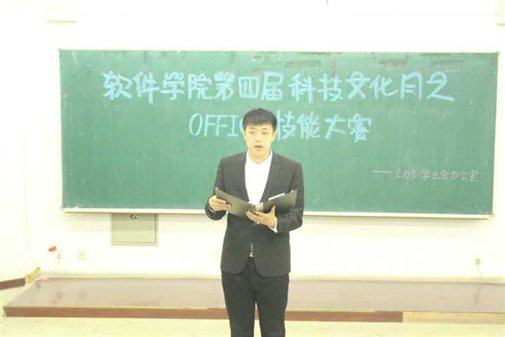 软件学院第四届科技文化月之
OFFIC 技能大赛
——主办方 学生会办公室